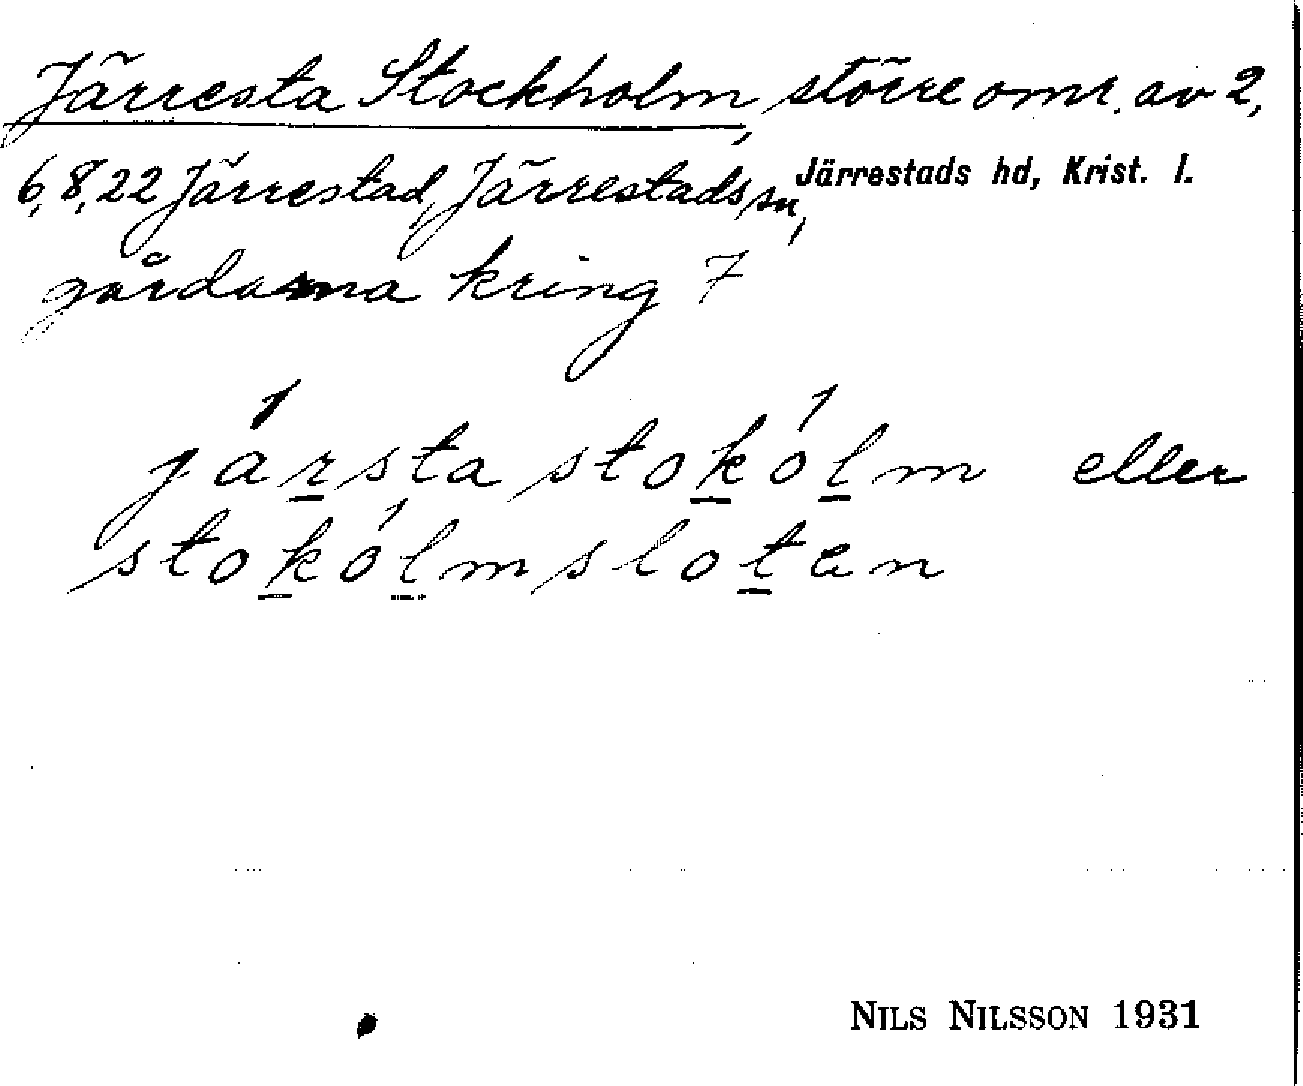 Järresta Stockholm, större omr. av 2,
6, 8, 22 Järrestad, Järrestads sn, Järrestads hd, Krist. l.
gårdarna kring 7
jársta stokólm eller
stokólmsloten
NILS NILSSON 1931